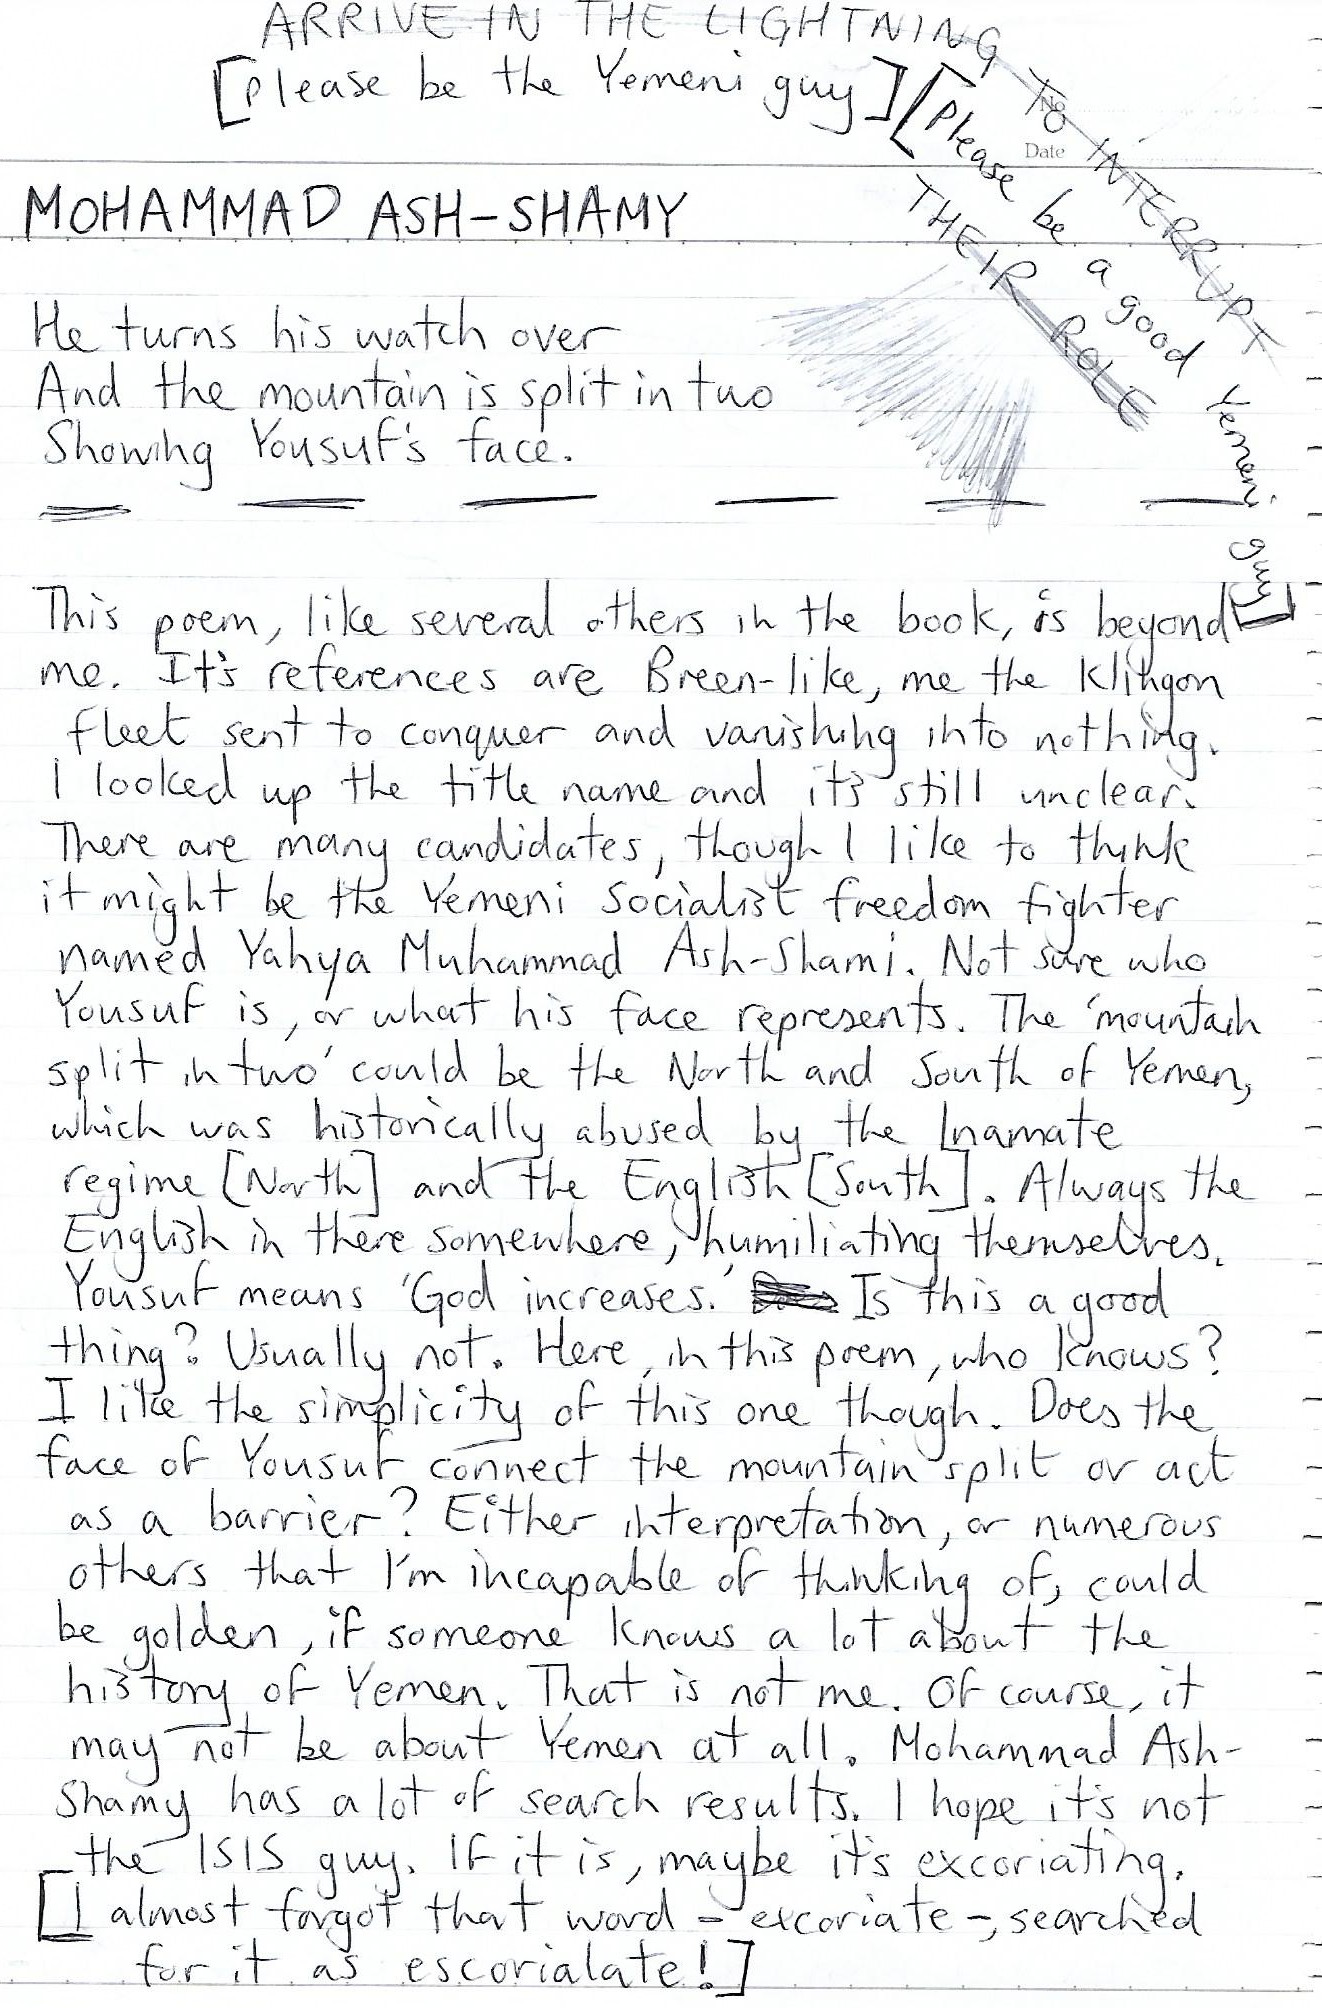 ARRIVE IN THE LIGHTNING TO INTERRUPT
THEIR ROLE
[please be the Yemeni guy]
[Please be a good Yemeni guy]
No
Date
MOHAMMAD ASH-SHAMY
He turns his watch over
And the mountain is split in two
Showing Yousuf's face.
This poem, like several others in the book, is beyond
me. It's references are Breen-like, me the Klingon
fleet sent to conquer and vanishing into nothing.
I looked up the title name and it's still unclear.
There are many candidates, though I like to think
it might be the Yemeni Socialist freedom fighter
named Yahya Muhammad Ash-Shami. Not sure who
Yousuf is, or what his face represents. The 'mountain
split in two' could be the North and South of Yemen,
which was historically abused by the Inamate
regime [North] and the English [South]. Always the
English in there somewhere, humiliating themselves.
Yousuf means 'God increases.' Is this a good
thing? Usually not. Here, in this poem, who knows?
I like the simplicity of this one though. Does the
face of Yousuf connect the mountain split or act
as a barrier? Either interpretation, or numerous
others that I'm incapable of thinking of, could
be golden, if someone knows a lot about the
history of Yemen. That is not me. Of course, it
may not be about Yemen at all. Mohammad Ash-
Shamy has a lot of search results. I hope it's not
the ISIS guy. If it is, maybe it's excoriating.
[I almost forgot that word - excoriate -, searched
for it as escorialate!]